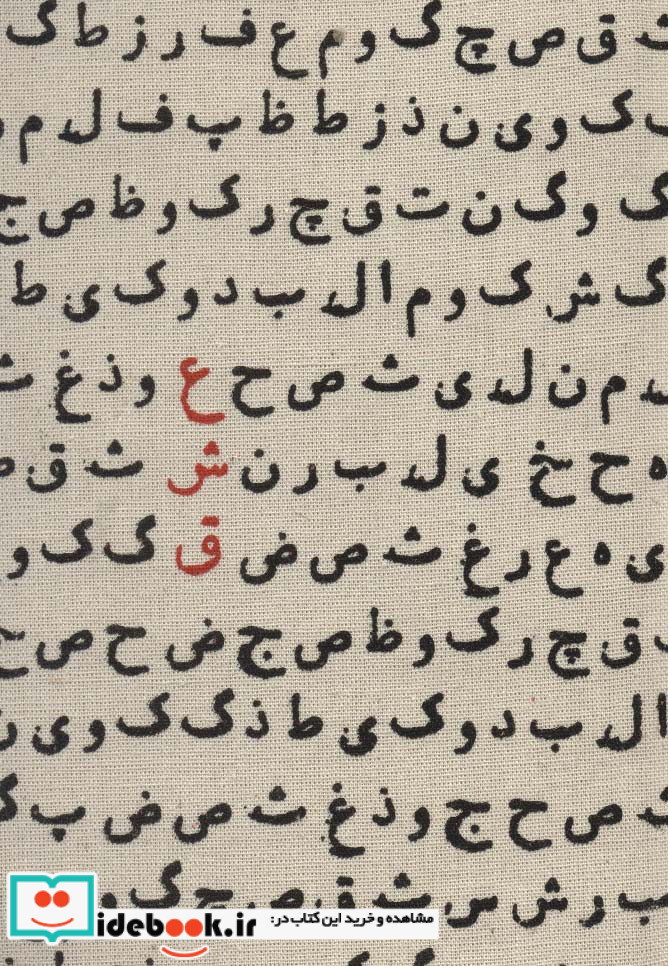 ت ق ص چ گ و م ع ف ر ز ط گ
ک و ی ن ذ ز ط ظ پ ف ل م
گ و گ ن ت ق چ ر ک و ظ ص ج
گ ش ک و م ا ل ب د و ک ی ط
م ن ل ی ث ص ح ع و ذ غ ث
ه ح خ ی ل ب ر ن ش ث ق ص
ی ه ع ر غ ث ص ض ق گ ک و
ق چ ر ک و ظ ص ج ض ح ص خ
ا ل ب د و ک ی ط ذ گ ک و ی ن
ث ص ح ج و ذ غ ث ص ض پ گ
ب ر ش س ث ق ص ج گ و
مشاهده و خرید این کتاب در:
idebook.ir